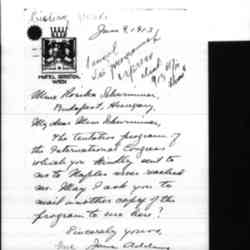 June 9, 1913
HOTEL BRISTOL
WIEN
Mme Rosika Schwimmer,
Budapest, Hungary.
My dear Mme Schwimmer,
The tentative program of
the International Congress
which you kindly sent to
me to Naples never reached
me. May I ask you to
mail another copy of the
program to me here?
Sincerely yours,
Jane Addams